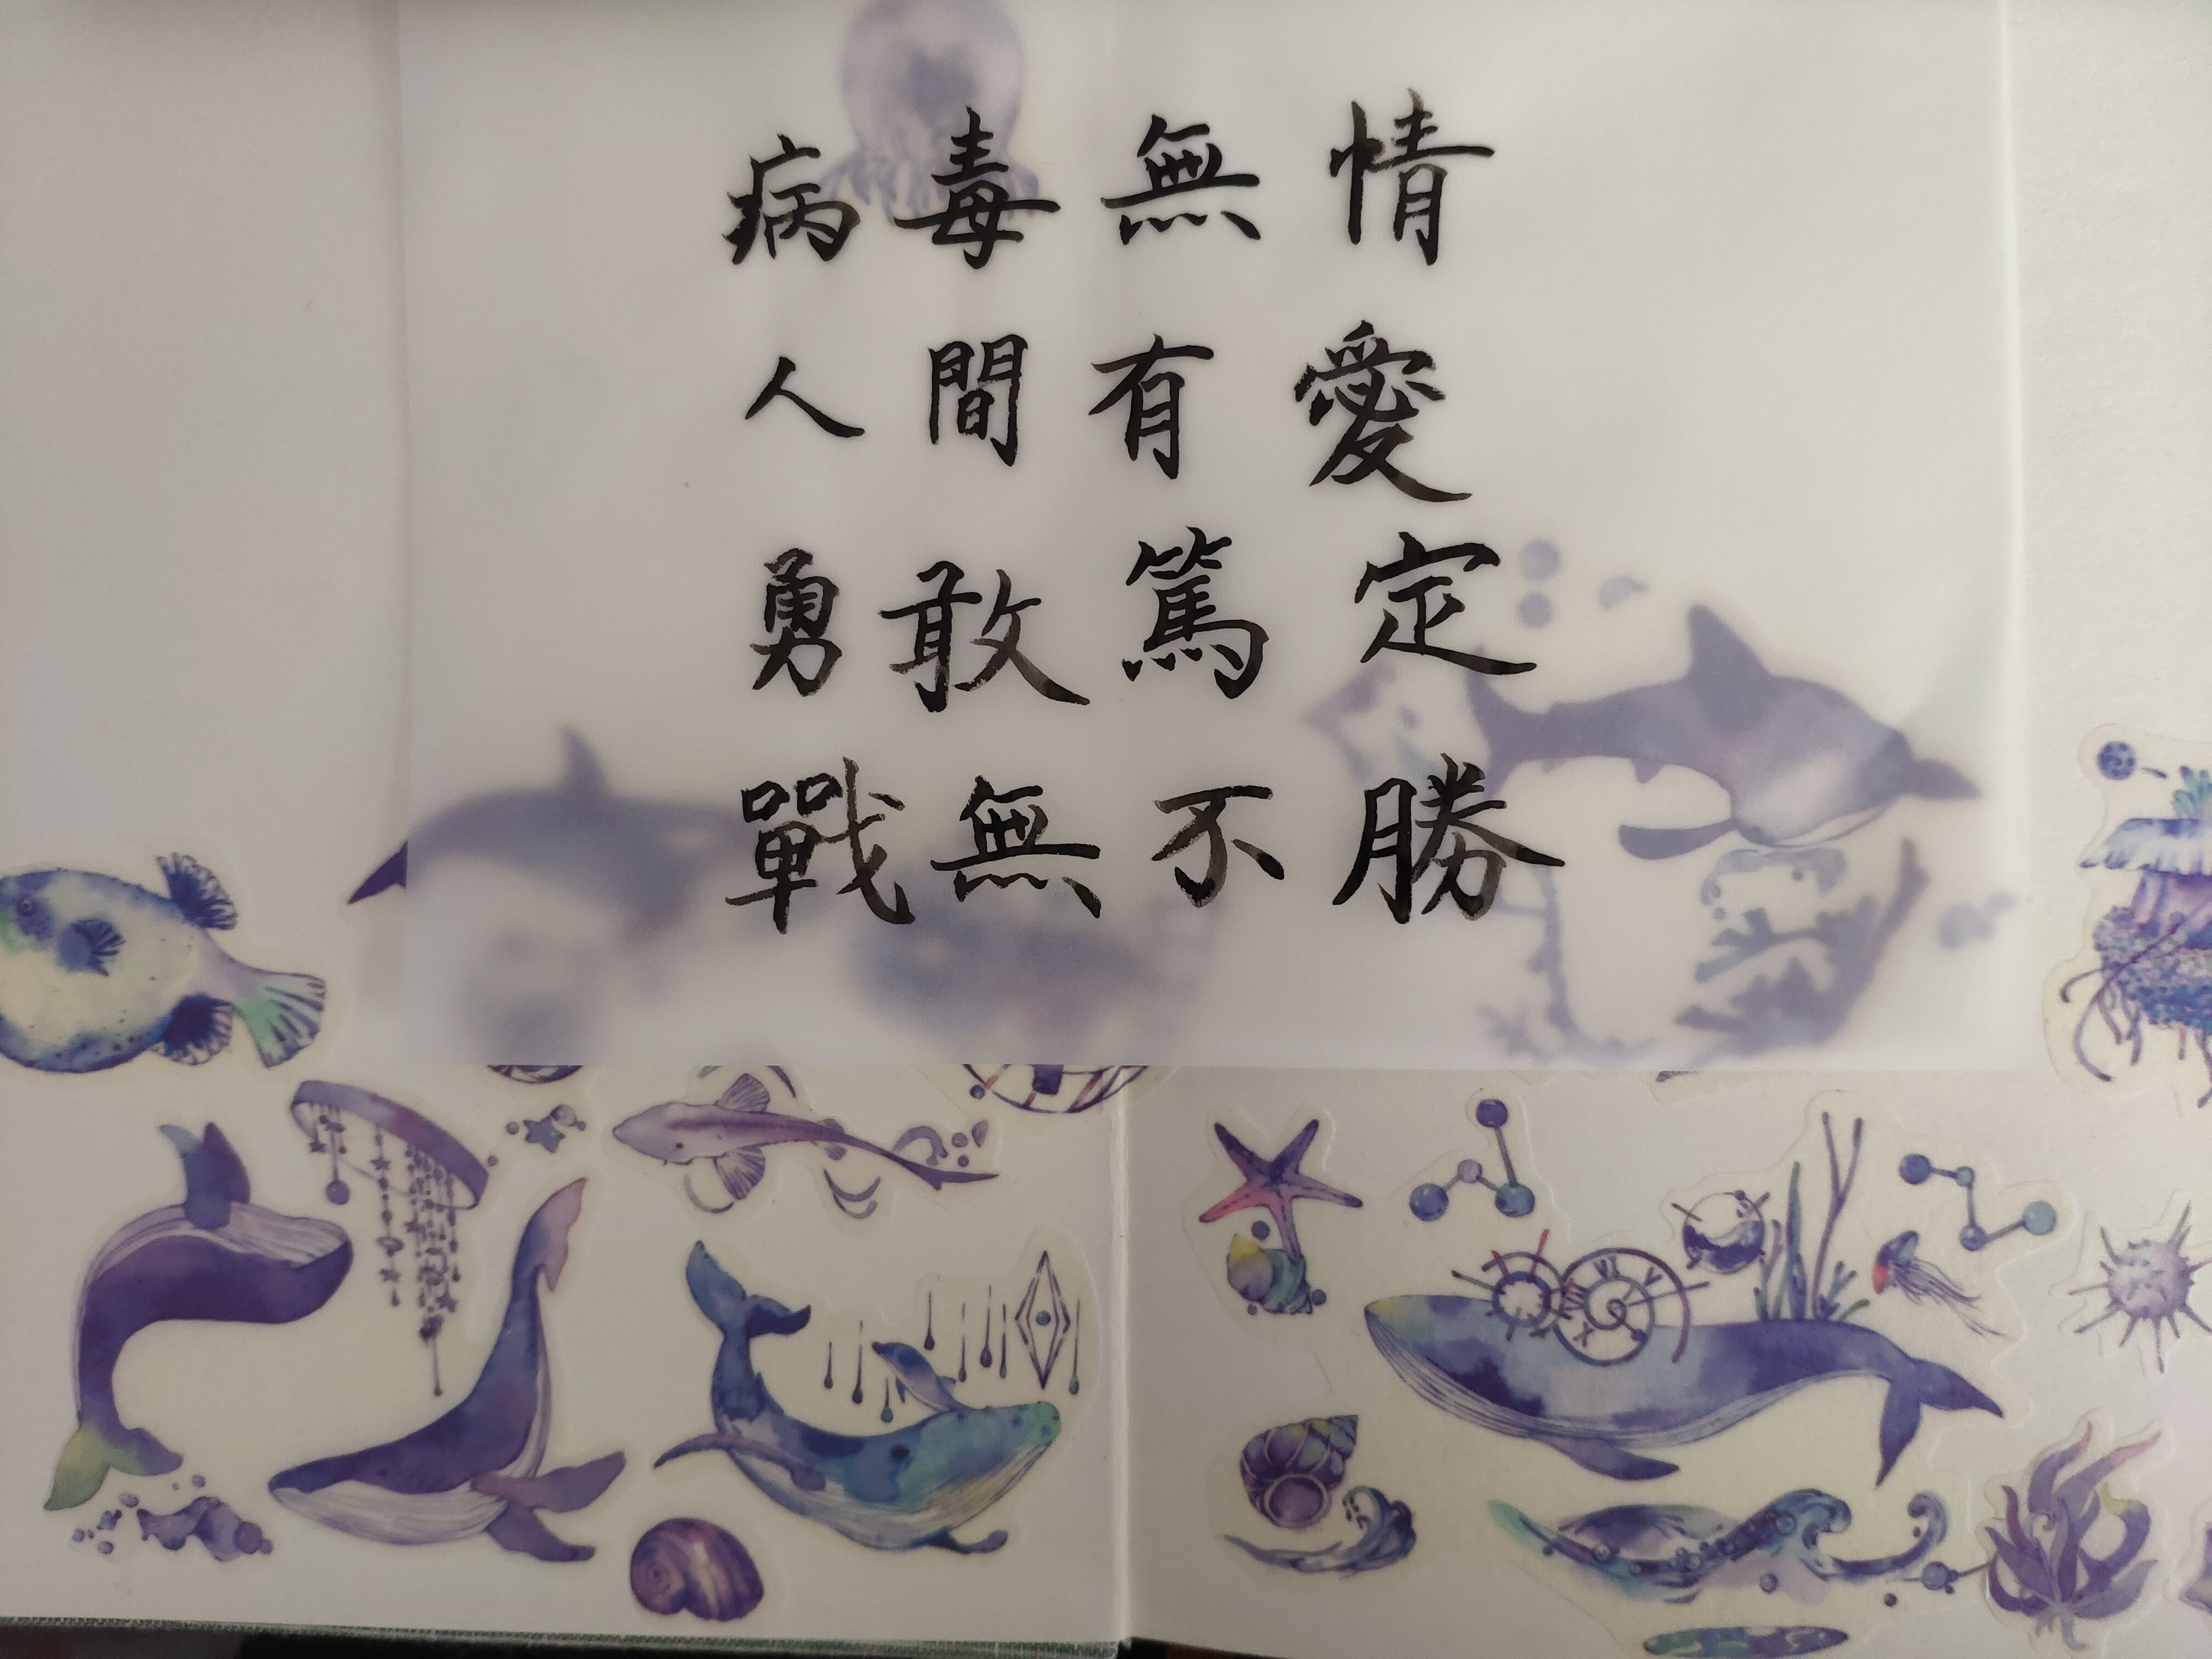 病毒無情
人間有愛
勇敢篤定
戰無不勝